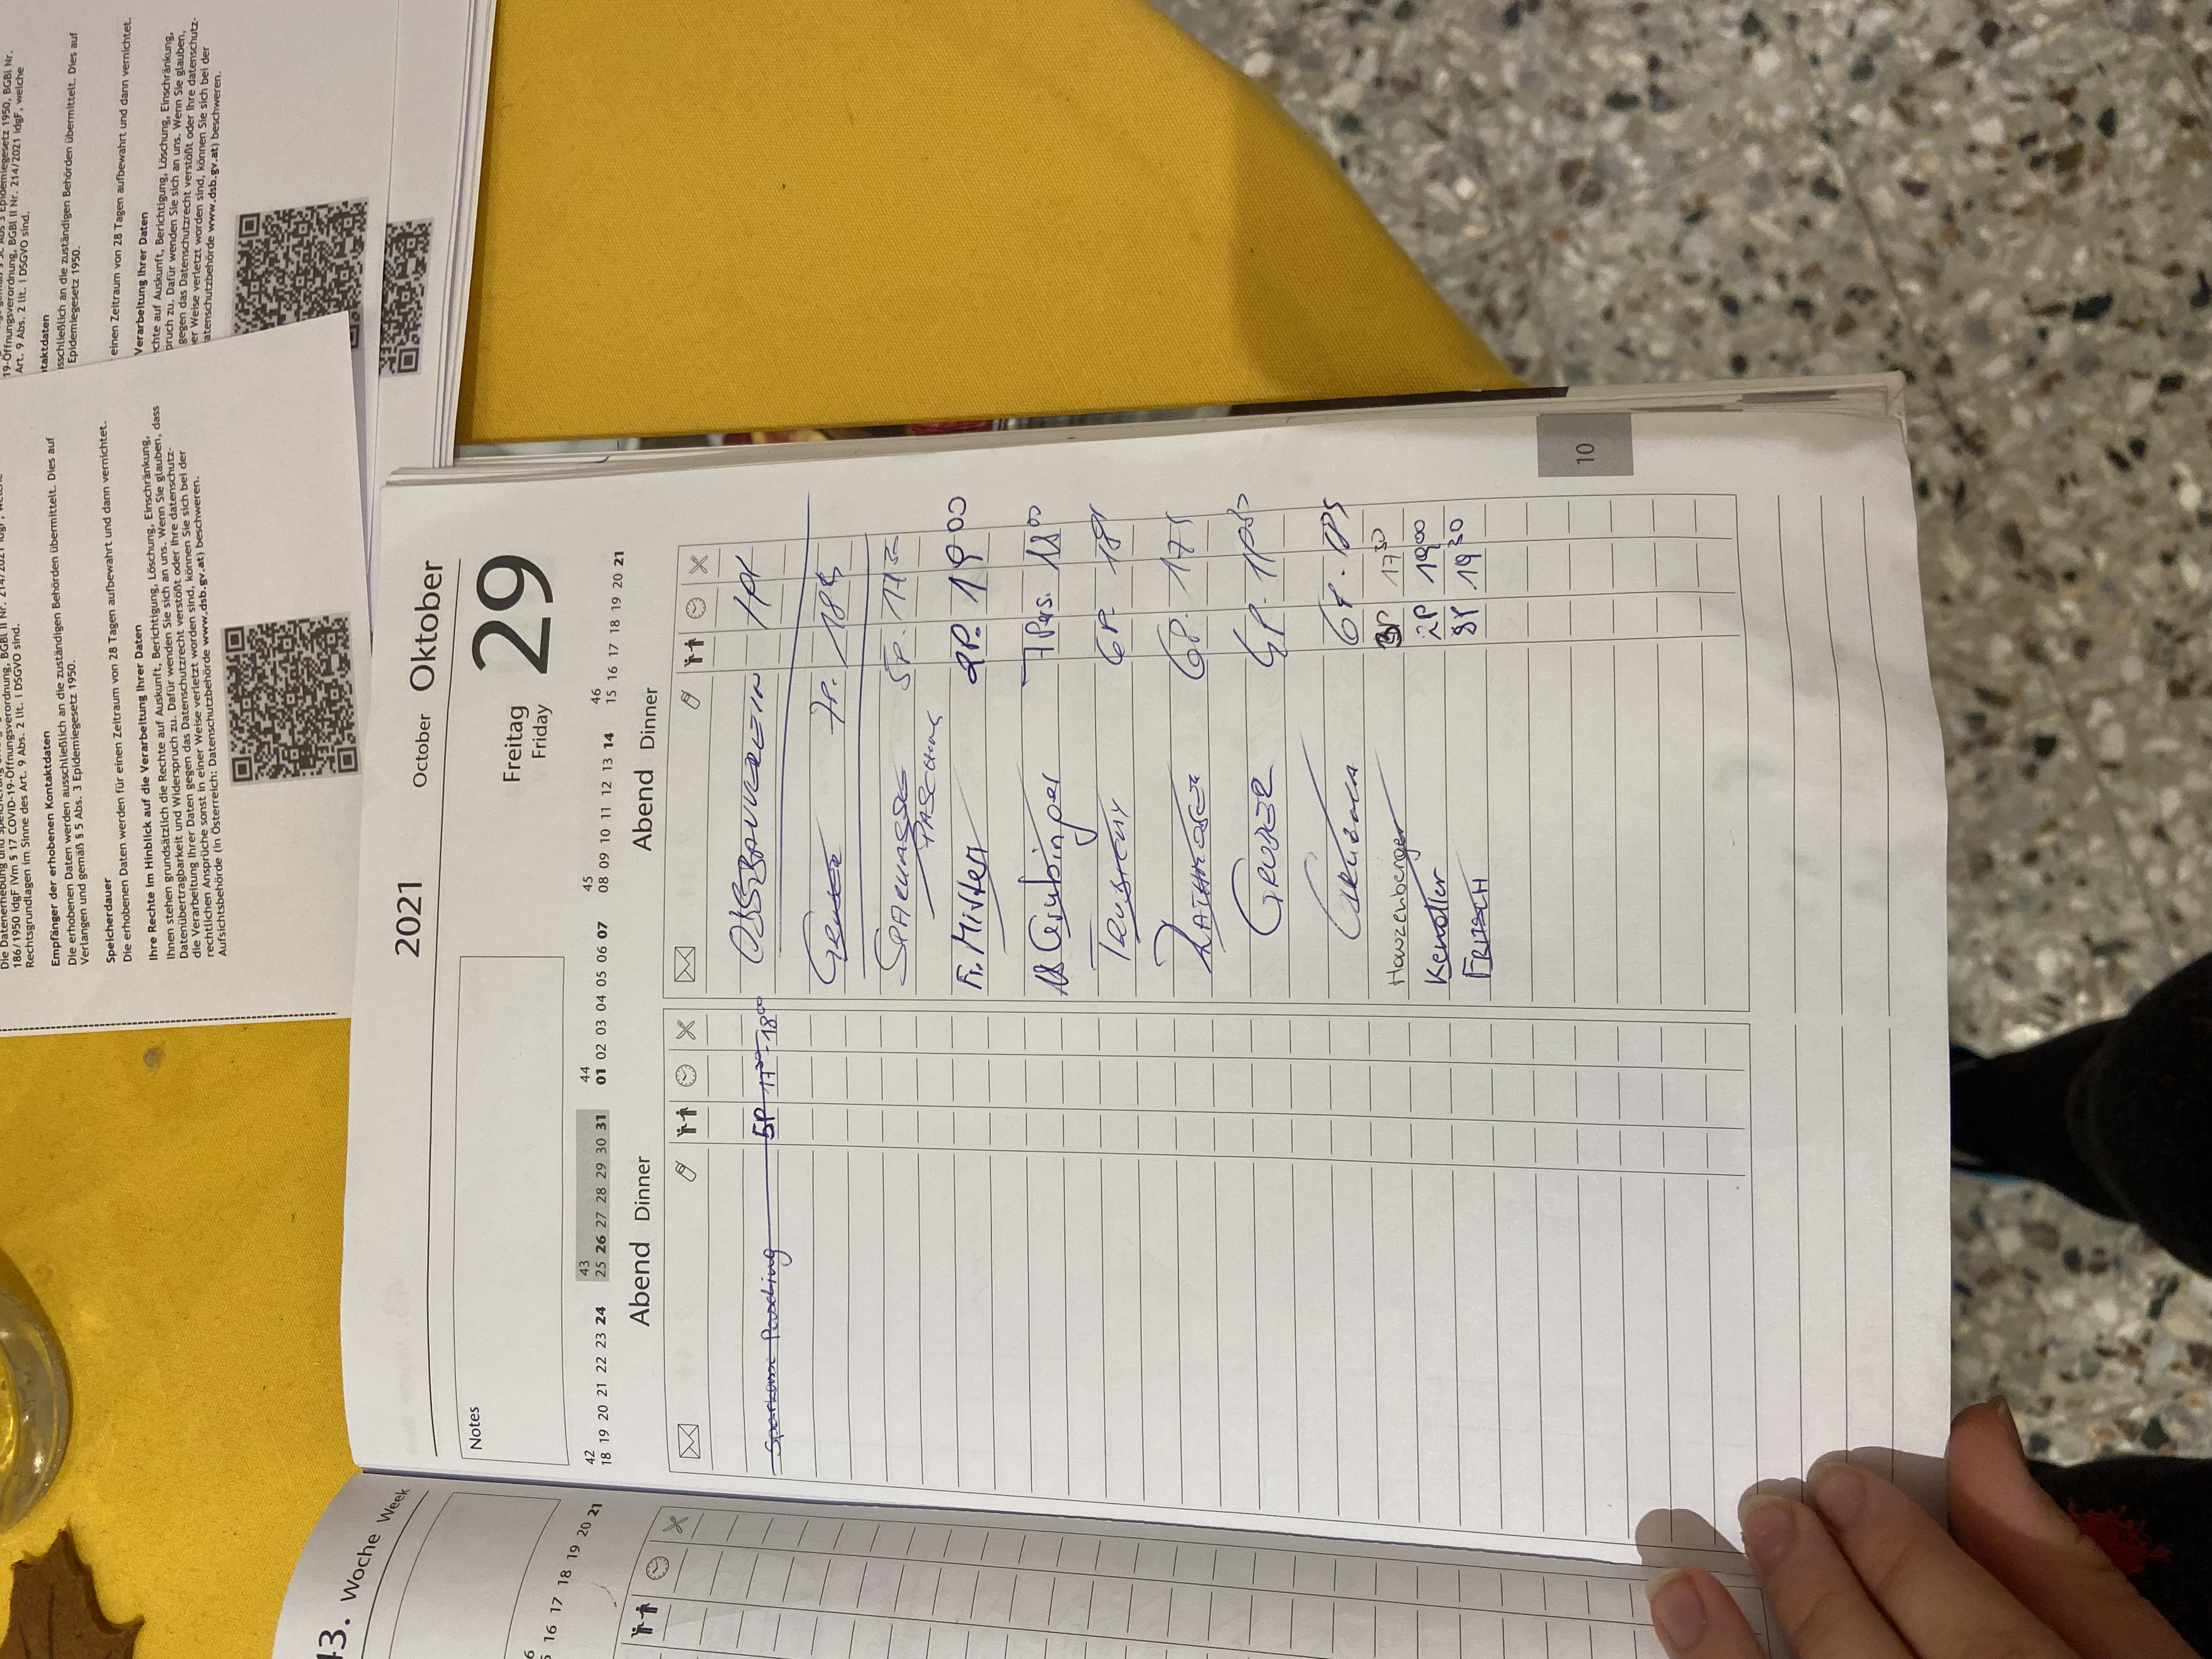 Die Datenerhebung und
186/1950 idgF iVm § 17 COVID-19-Öffnungsverordnung, BGBl II Nr. 214/2021 idgF,
Rechtsgrundlagen im Sinne des Art. 9 Abs. 2 lit. i DSGVO sind.
Empfänger der erhobenen Kontaktdaten
Die erhobenen Daten werden ausschließlich an die zuständigen Behörden übermittelt. Dies auf
Verlangen und gemäß § 5 Abs. 3 Epidemiegesetz 1950.
Speicherdauer
Die erhobenen Daten werden für einen Zeitraum von 28 Tagen aufbewahrt und dann vernichtet.
Ihre Rechte im Hinblick auf die Verarbeitung Ihrer Daten
Ihnen stehen grundsätzlich die Rechte auf Auskunft, Berichtigung, Löschung, Einschränkung,
Datenübertragbarkeit und Widerspruch zu. Dafür wenden Sie sich an uns. Wenn Sie glauben, dass
die Verarbeitung Ihrer Daten gegen das Datenschutzrecht verstößt oder Ihre datenschutz-
rechtlichen Ansprüche sonst in einer Weise verletzt worden sind, können Sie sich bei der
Aufsichtsbehörde (in Österreich: Datenschutzbehörde www.dsb.gv.at) beschweren.
3 Epidemiegesetz 1950, BGBl Nr.
19-Öffnungsverordnung, BGBl II Nr. 214/2021 idgF, welche
Art. 9 Abs. 2 lit. i DSGVO sind.
ntaktdaten
sschließlich an die zuständigen Behörden übermittelt. Dies auf
Epidemiegesetz 1950.
einen Zeitraum von 28 Tagen aufbewahrt und dann vernichtet.
Verarbeitung Ihrer Daten
chte auf Auskunft, Berichtigung, Löschung, Einschränkung,
pruch zu. Dafür wenden Sie sich an uns. Wenn Sie glauben,
gegen das Datenschutzrecht verstößt oder Ihre datenschutz-
er Weise verletzt worden sind, können Sie sich bei der
atenschutzbehörde www.dsb.gv.at) beschweren.
43. Woche Week
16 17 18 19 20 21
2021 October Oktober
Notes
Freitag 29
Friday
42 43 44 45 46
18 19 20 21 22 23 24 25 26 27 28 29 30 31 01 02 03 04 05 06 07 08 09 10 11 12 13 14 15 16 17 18 19 20 21
Abend Dinner
Abend Dinner
Sparkasse Pasching 5P 17³⁰-18⁰⁰
OBSTBAUVEREIN
Gruber 7P. 18h
SPARKASSE 5P. 17³⁰
PASCHING
Fr. Mitter 2P. 19⁰⁰
Grubinger 7 Pers. 18⁰⁰
6P. 18h
6P. 17h
GRUBER
6P. 18h
Hauzenberger 3P 17³⁰
Kendler 2P 19⁰⁰
FRITSCH 19³⁰
10